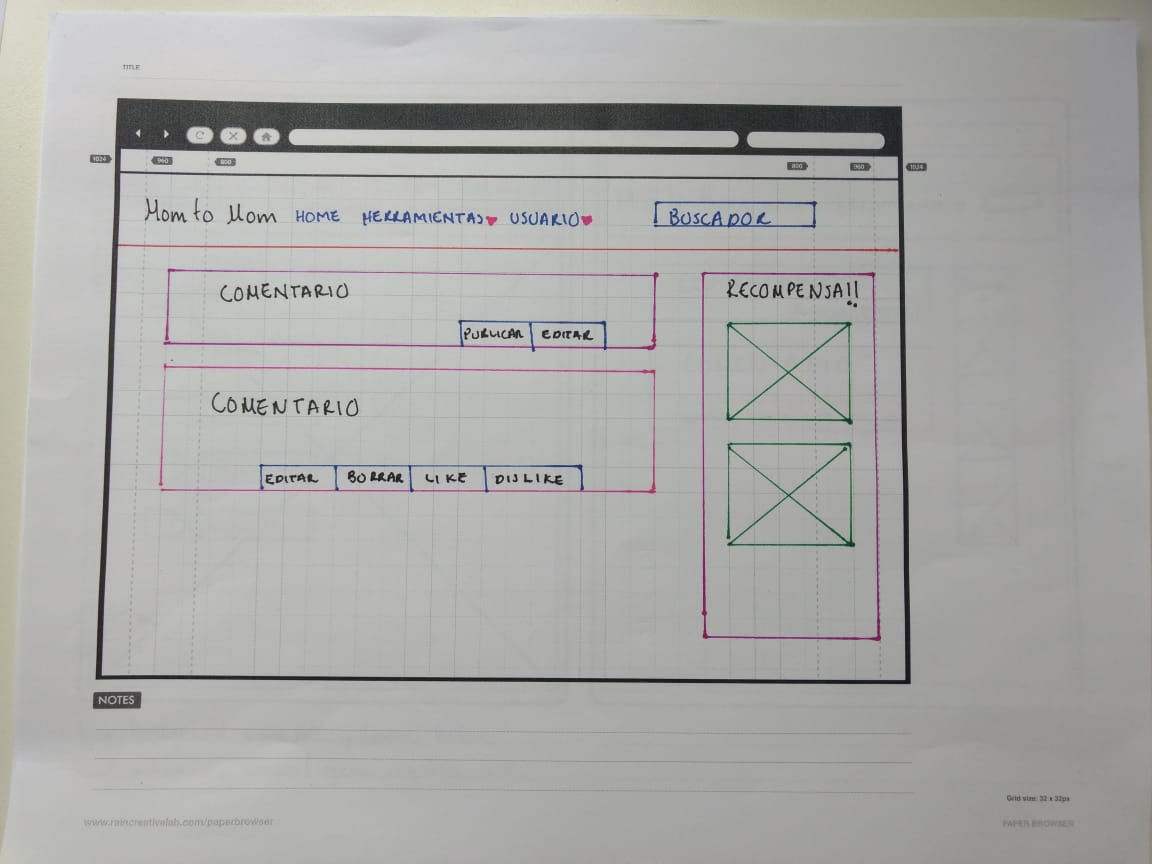 TITLE
1024 960 800 800 960 1024
Mom to Mom HOME HERRAMIENTAS USUARIO BUSCADOR
COMENTARIO
PUBLICAR EDITAR
COMENTARIO
EDITAR BORRAR LIKE DISLIKE
RECOMPENSA!!
NOTES
Grid size: 32 x 32px
www.raincreativelab.com/paperbrowser
PAPER-BROWSER